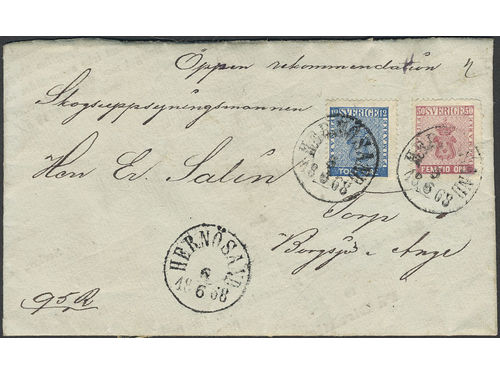 Öppen rekommendation
Skogsuppsyningsmannen
12 SVERIGE 12
TOLF ÖRE
50 SVERIGE 50
FEMTIO ÖRE
HERNÖSAND
6
18 6 68
Herr Er. Salin
Torp
Bergsjö Ange
HERNÖSAND
6
18 6 68